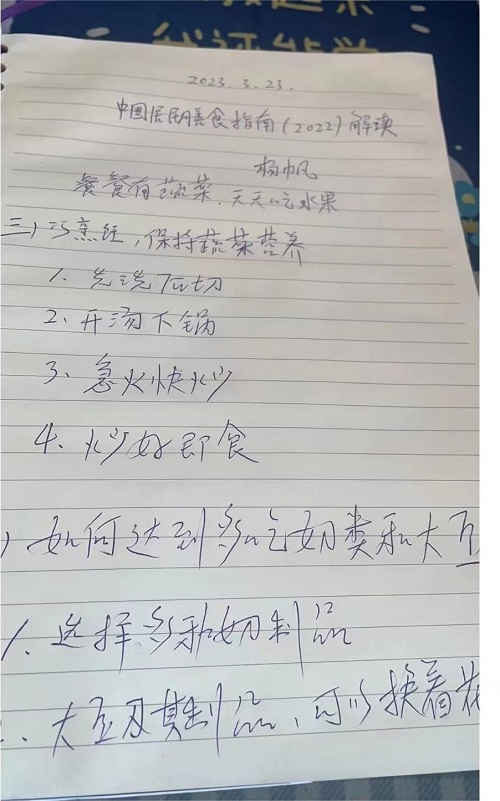 2023.3.23.
中国居民膳食指南(2022)解读
杨帆
餐餐有蔬菜、天天吃水果
三)巧烹饪,保持蔬菜营养
1、先洗后切
2、开汤下锅
3、急火快炒
4、炒好即食
)如何达到多吃奶类和大豆
1、选择多种奶制品
、大豆及其制品,可以换着花